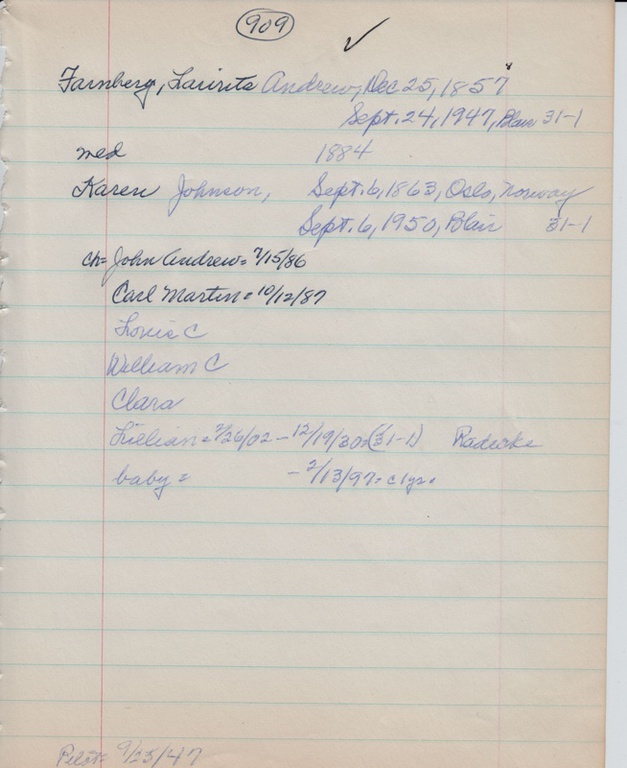 909
Farnberg, Laurits Andrew, Dec 25, 1857
Sept. 24, 1947, Blair 31-1
med 1884
Karen Johnson, Sept. 6, 1863, Oslo, Norway
Sept. 6, 1950, Blair 31-1
ch= John Andrew= 7/15/86
Carl Martin= 10/12/87
Louie C
William C
Clara
Lillian= 2/26/02 - 12/19/30= (31-1) Radeike
baby= - 2/13/97= clyr.
Pilot= 9/25/47